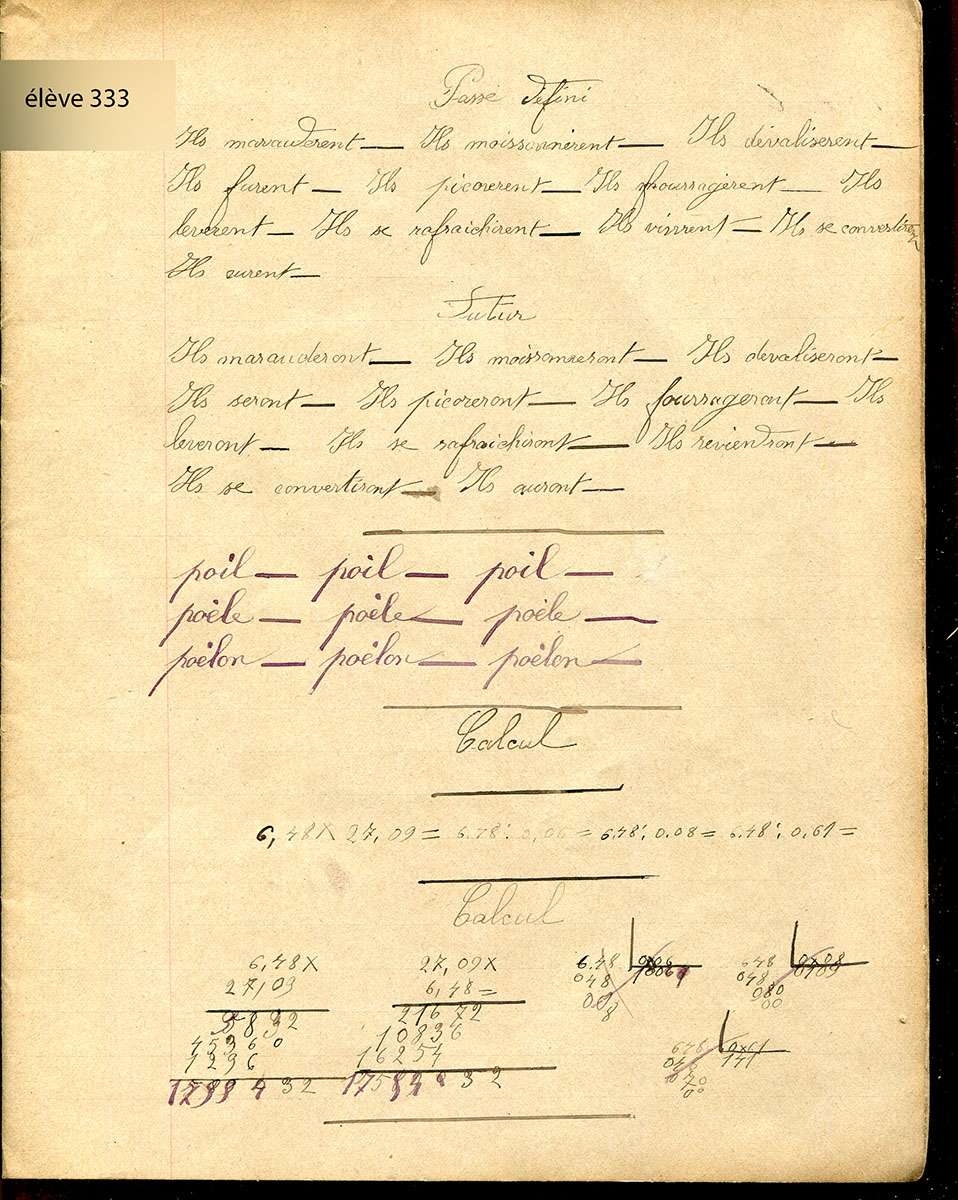 élève 333
Passé défini
Ils marauderent — Ils moissonnèrent — Ils dévaliserent —
Ils furent — Ils picorerent — Ils fourragèrent — Ils
leverent — Ils se rafraichirent — Ils vinrent — Ils se
Ils eurent —
Futur
Ils marauderont — Ils moissonneront — Ils devaliseront —
Ils seront — Ils picoreront — Ils fourrageront — Ils
leveront — Ils se rafraichiront — Ils reviendront —
Ils se convertiront — Ils auront —
poil — poil — poil —
poèle — poèle — poèle —
poèlon — poèlon — poèlon —
Calcul
6,48 X 27,09 = 6.48 : 0,06 = 6.48 : 0.08 = 6.48 : 0,61 =
Calcul
6,48 X 27,09 X 6.48 0x06 648 0x08
27,09 6,48 = 048 048
5832 21672 008 080
45360 10836 8 00
1296 16254 648 0x61
141